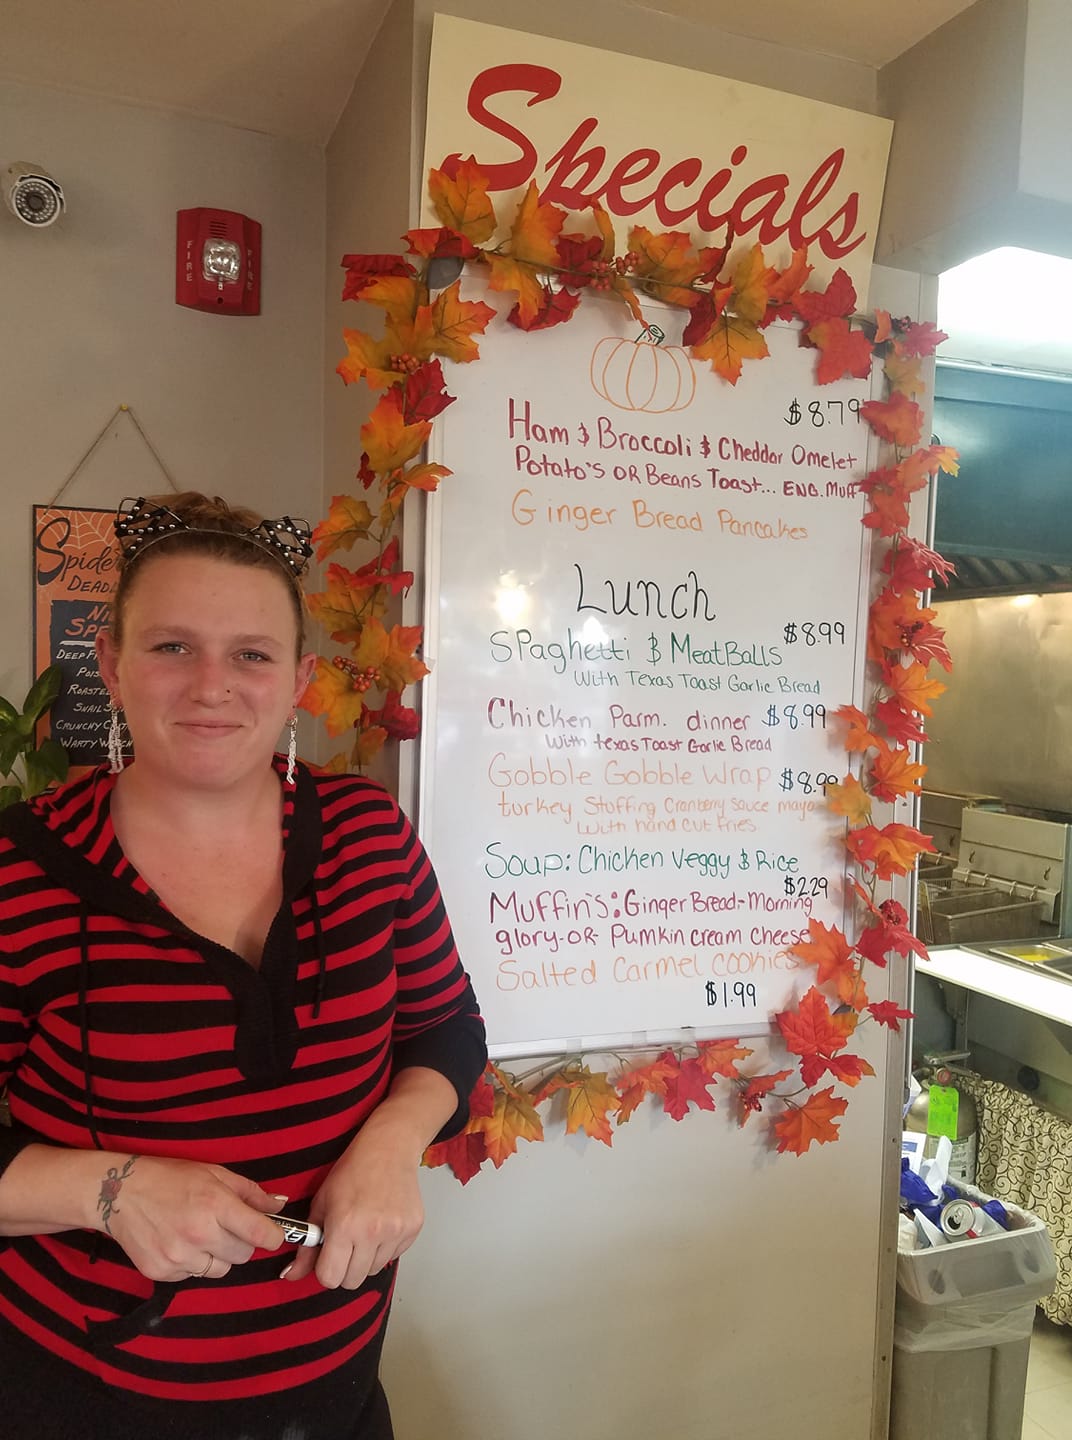 Specials
FIRE
FIRE
$8.79
Ham & Broccoli & Cheddar Omelet
Potato's OR Beans Toast... ENG. Muff
Ginger Bread Pancakes
Lunch
$8.99
Spaghetti & MeatBalls
With Texas Toast Garlic Bread
Chicken Parm. dinner $8.99
With texas Toast Garlic Bread
Gobble Gobble Wrap $8.99
turkey Stuffing Cranberry sauce mayo
With hand cut fries
Soup: Chicken Veggy & Rice
$2.29
Muffin's: Ginger Bread-Morning
glory-OR- Pumkin cream cheese
Salted Carmel cookies
$1.99
Spider
DEADL
SP
DEEP F
ROASTE
SNAIL S
CRUNCHY
WARTY